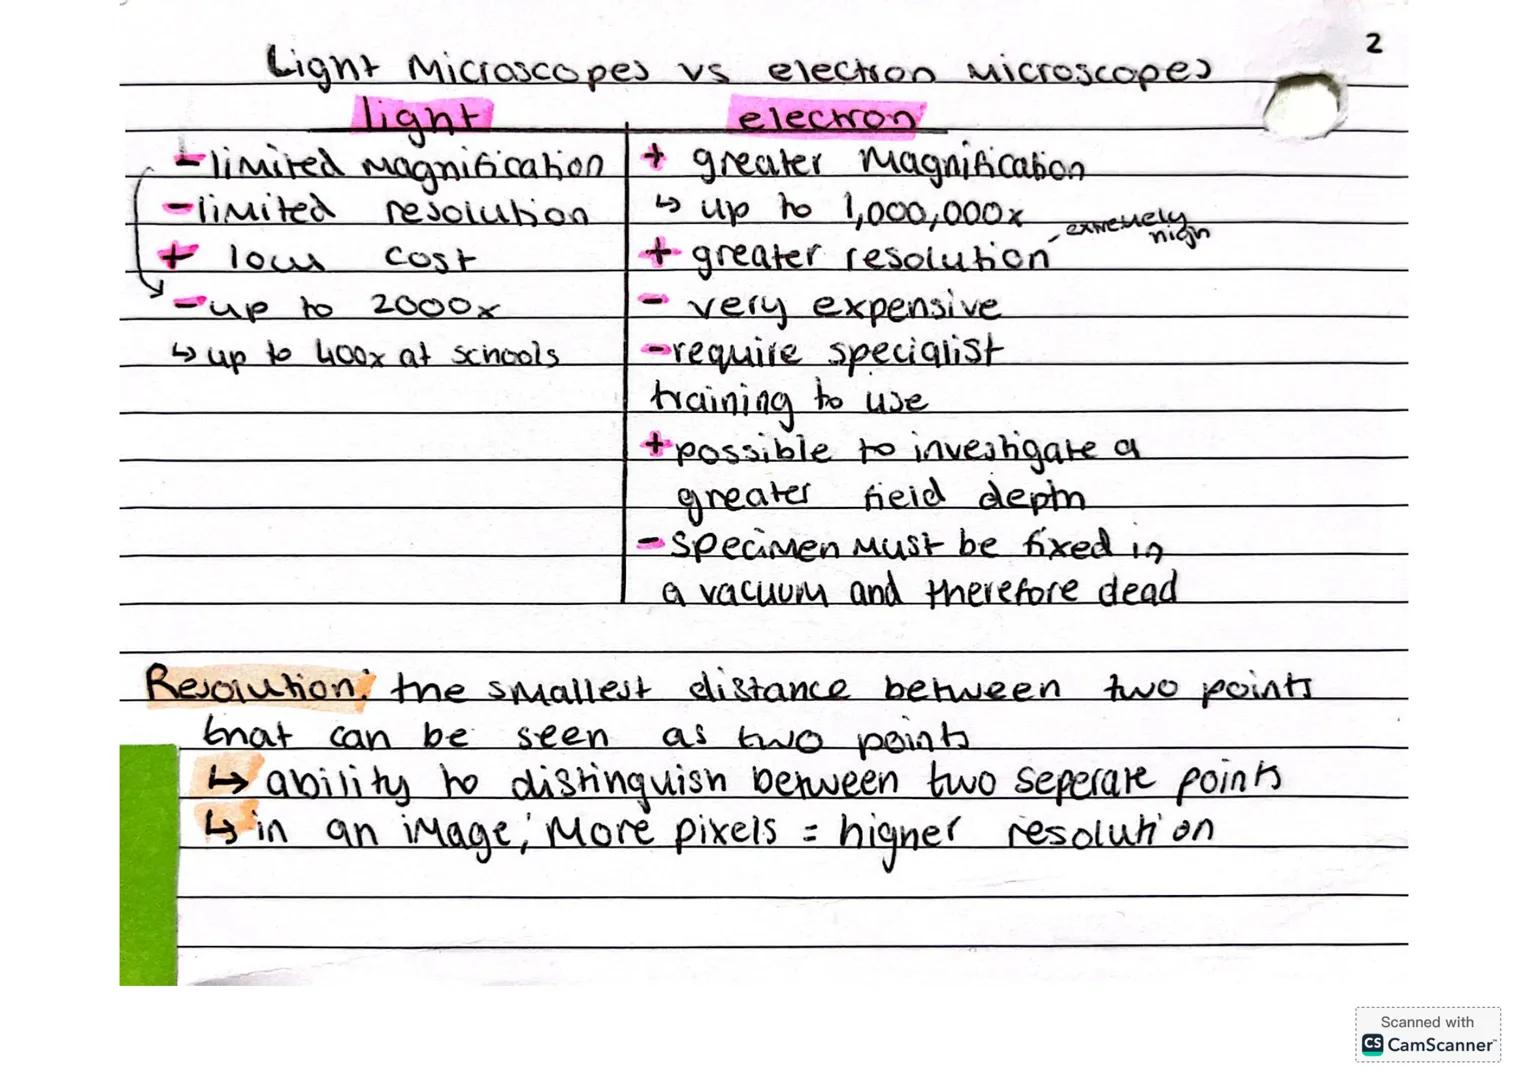 2
Light Microscopes vs electron microscopes
light
- limited magnification
- limited resolution
+ low cost
- up to 2000x
↳ up to 400x at schools
electron
+ greater magnification
↳ up to 1,000,000x
+ greater resolution - extremely high
- very expensive
- require specialist
training to use
+ possible to investigate a
greater field depth
- specimen must be fixed in
a vacuum and therefore dead
Resolution: the smallest distance between two points
that can be seen as two points
↳ ability to distinguish between two seperate points
↳ in an image; more pixels = higher resolution
Scanned with
CS CamScanner